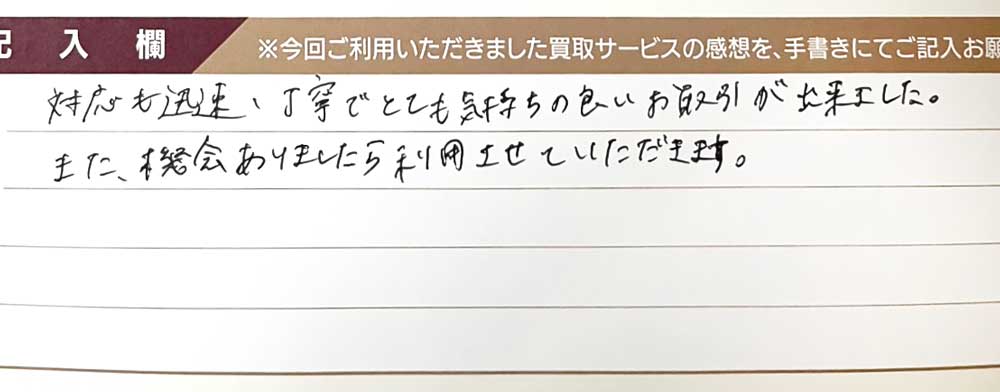 記入欄
※今回ご利用いただきました買取サービスの感想を、手書きにてご記入お願
対応も迅速、丁寧でとても気持ちの良いお取引が出来ました。
また、機会ありましたら利用させていただきます。